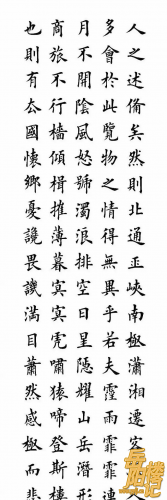 人之述備矣然則北通巫峽南極瀟湘遷
多會於此覽物之情得無異乎若夫霪雨霏霏連
月不開陰風怒號濁浪排空日星隱耀山岳潛形
商旅不行檣傾楫摧薄暮冥冥虎嘯猿啼登斯樓
也則有去國懷鄉憂讒畏譏滿目蕭然感極而悲